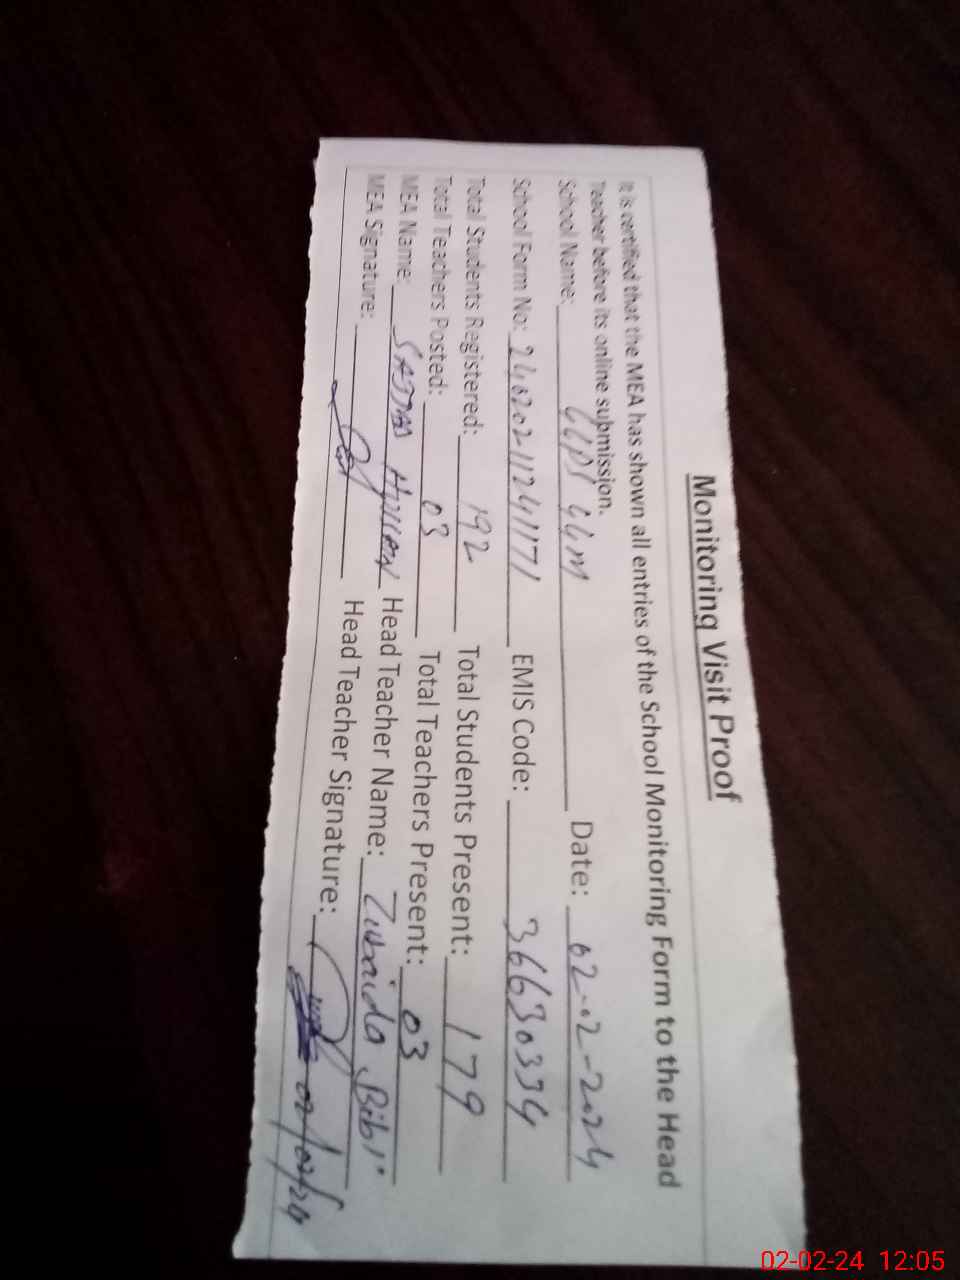 Monitoring Visit Proof
It is certified that the MEA has shown all entries of the School Monitoring Form to the Head
Teacher before its online submission.
School Name: Date: 02-02-2024
School Form No: EMIS Code: 36630334
Total Students Registered: 192 Total Students Present: 179
Total Teachers Posted: 03 Total Teachers Present: 03
MEA Name: Head Teacher Name: Zubaida Bibi
MEA Signature: Head Teacher Signature:
02/02/24
02-02-24 12:05